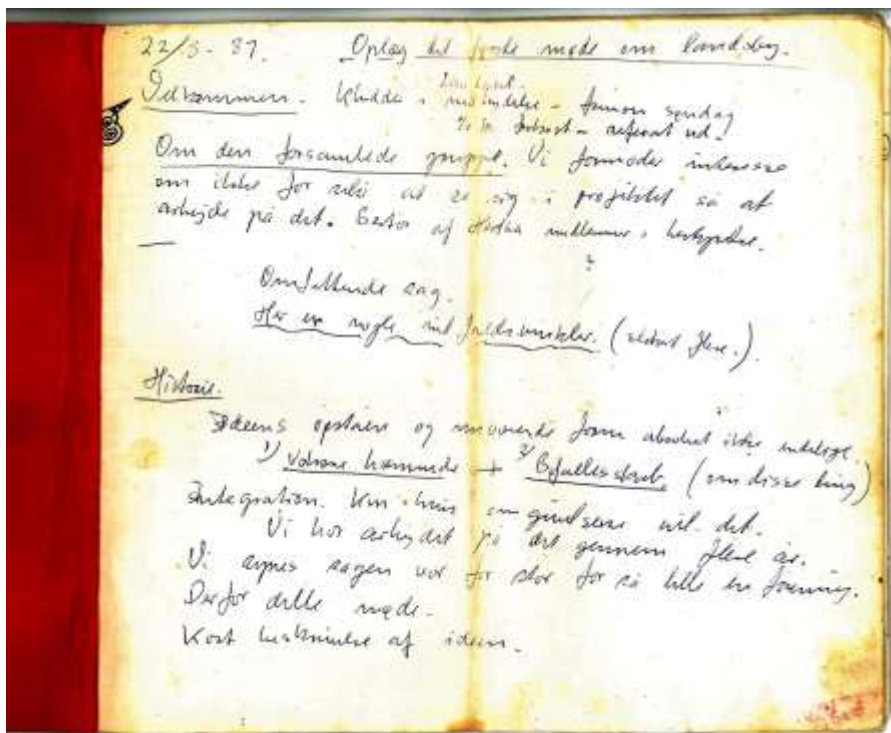 22/3-87. Oplæg det møde om landsby.
Velkommen. Kludder i indkaldelse - søndag
referat ud.
Om den forsamlede gruppe. Vi formoder interesse
om ikke for selv at se sig i projektet så at
arbejde på det. af medlemmer i bestyrelse.
?
Omfattende sag.
Her er nogle indfaldsvinkler. (sikkert flere.).
Historie.
Ideens opståen og nuværende form absolut ikke endelige
1) Voksne hæmmede + 2) Bofællesskab. (om disse ting)
Integration. Kun hvis omgivelserne vil det.
Vi har arbejdet på det gennem flere år.
Vi synes sagen var for stor for så lille en forening.
Derfor dette møde.
Kort beskrivelse af ideen.